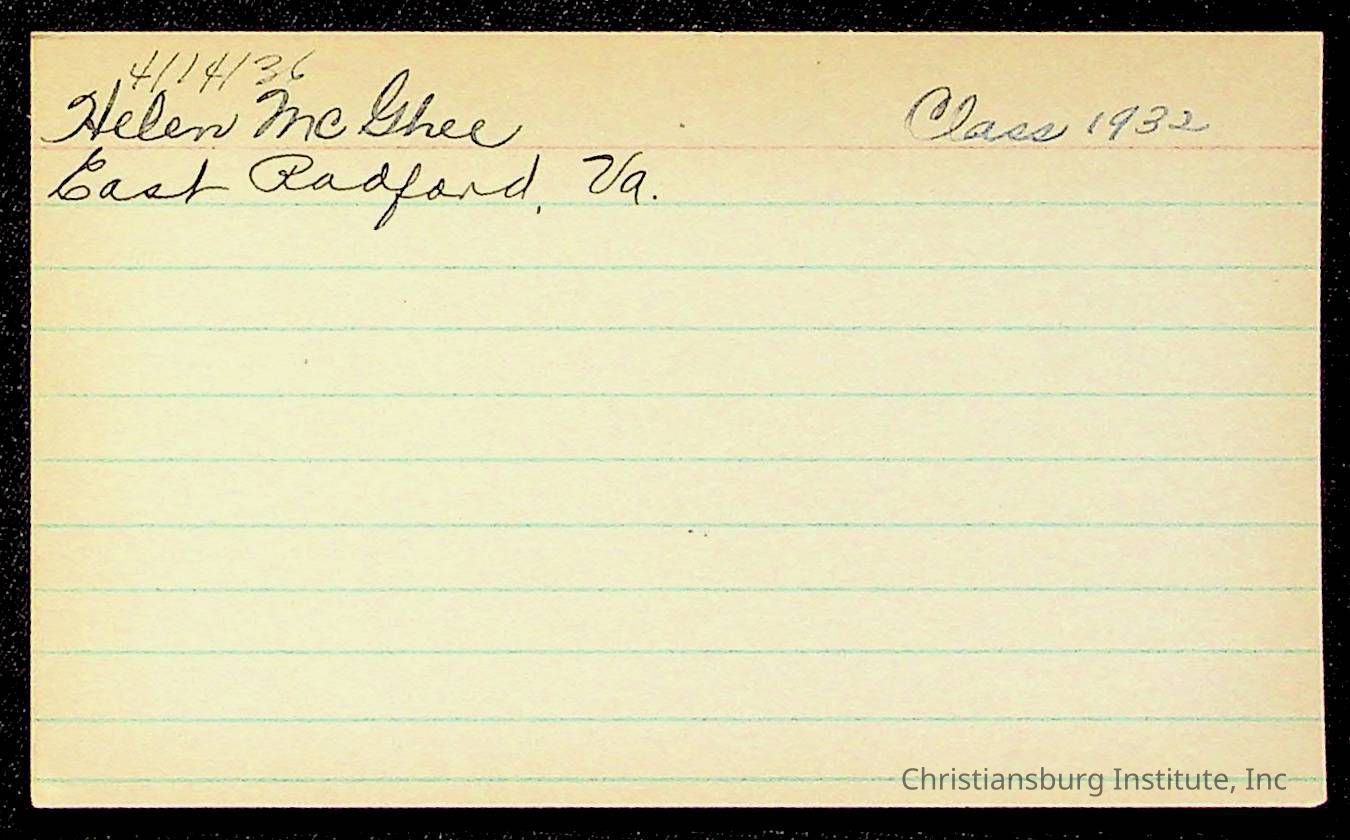 4/14/36
Helen McGhee Class 1932
East Radford, Va.
Christiansburg Institute, Inc